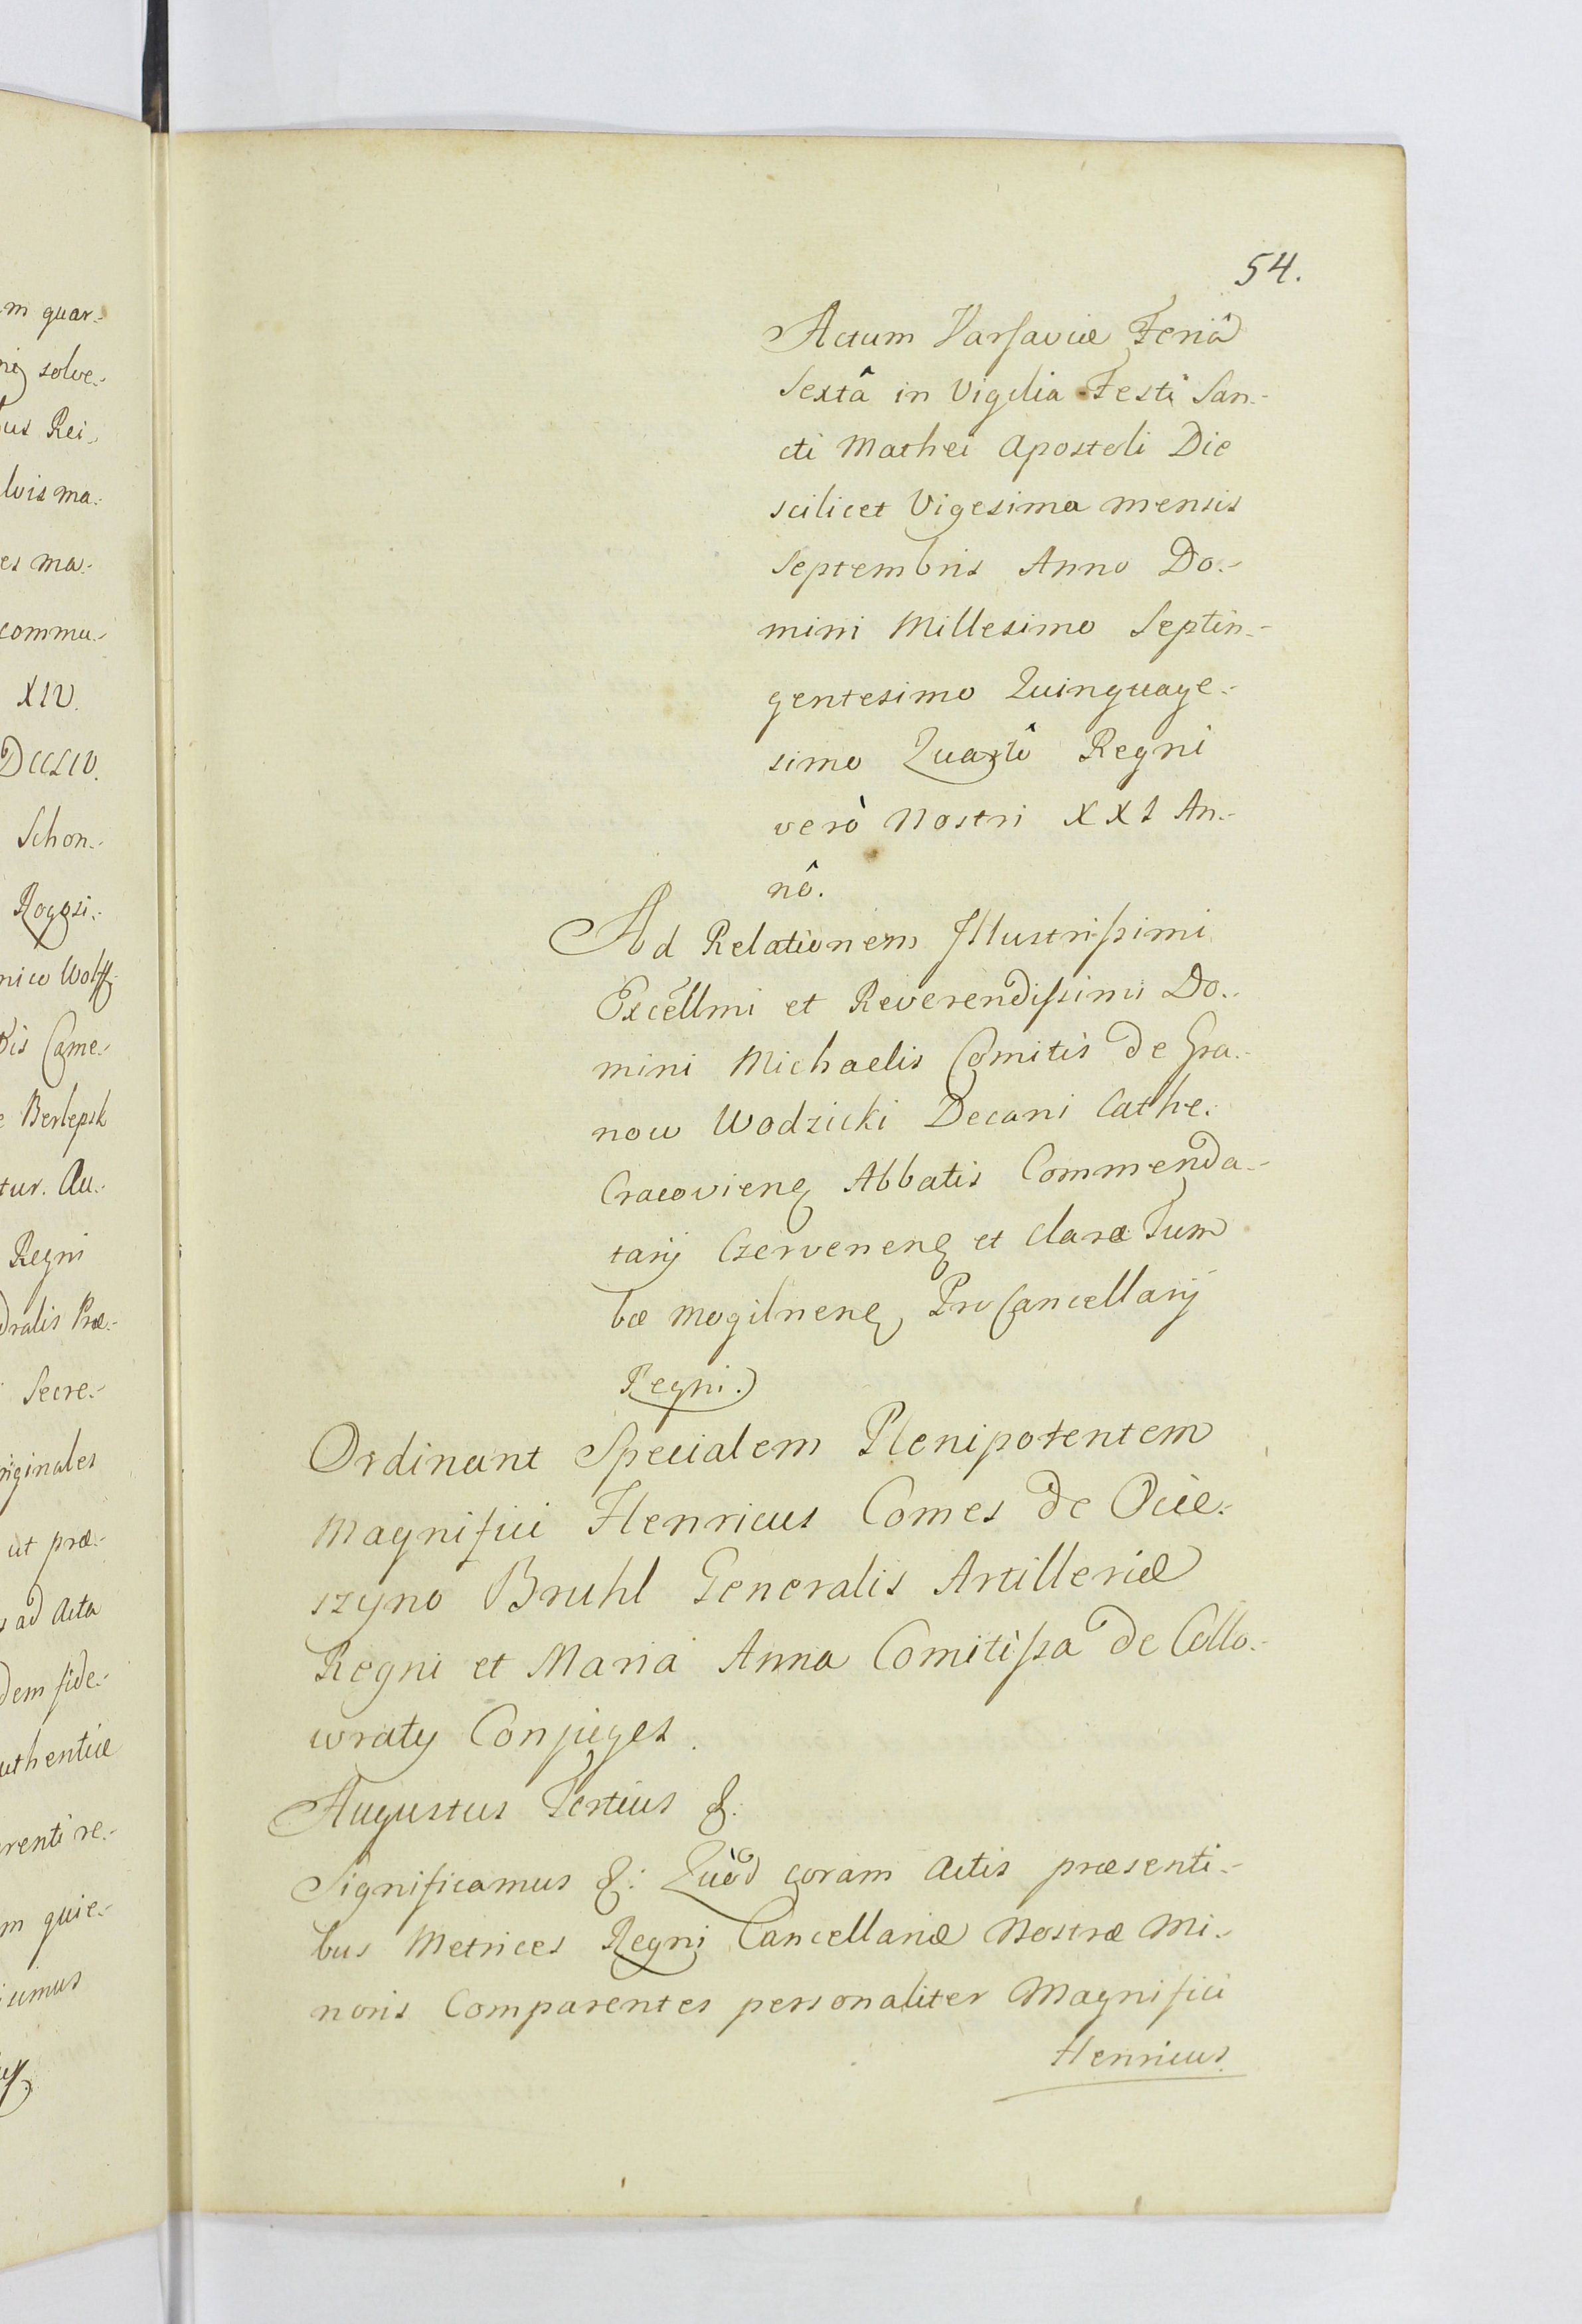 m quar-
ni solve-
us Rei
luis ma-
es ma-
commu-
XIV.
DCCLIV.
Schon-
Rogosi-
nico Wolff
is Came-
e Berlepsk
tur. Au-
Regni
dralis Præ-
Secre-
riginales
ut præ-
s ad Acta
dem fide-
uthenticæ
renti re-
m quie-
simus
54.
Actum Varsaviæ Feriâ
Sextâ in Vigilia Festi San-
cti Mathei Apostoli Die
scilicet Vigesima mensis
Septembris Anno Do-
mini Millesimo Septin-
gentesimo Quinquage-
simo Quartô Regni
verò Nostri XXI An-
nô.
Ad Relationem Illustrissimi
Excellmi et Reverendissimi Do-
mini Michaelis Comitis de Gra-
now Wodzicki Decani Cathe.
Cracovien Abbatis Commenda-
tarij Czervenen et Claræ Tum
bæ Mogilnen, ProCancellarij
Regni.
Ordinant Specialem Plenipotentem
Magnifici Henricus Comes de Ocie-
szyno Bruhl Generalis Artilleriæ
Regni et Maria Anna Comitissa de Collo-
wraty Conjuges.
Augustus Tertius &:
Significamus &: Quòd coram Actis præsenti-
bus Metrices Regni Cancellariæ Nostræ Mi-
noris Comparentes personaliter Magnifici
Henricus